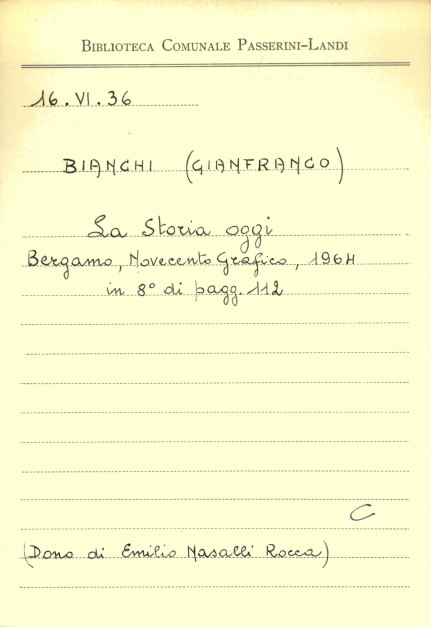 BIBLIOTECA COMUNALE PASSERINI-LANDI
16.VI.36
BIANCHI (GIANFRANCO)
La Storia oggi
Bergamo, Novecento Grafico, 1964
in 8° di pagg. 112
C
(Dono di Emilio Nasalli Rocca)